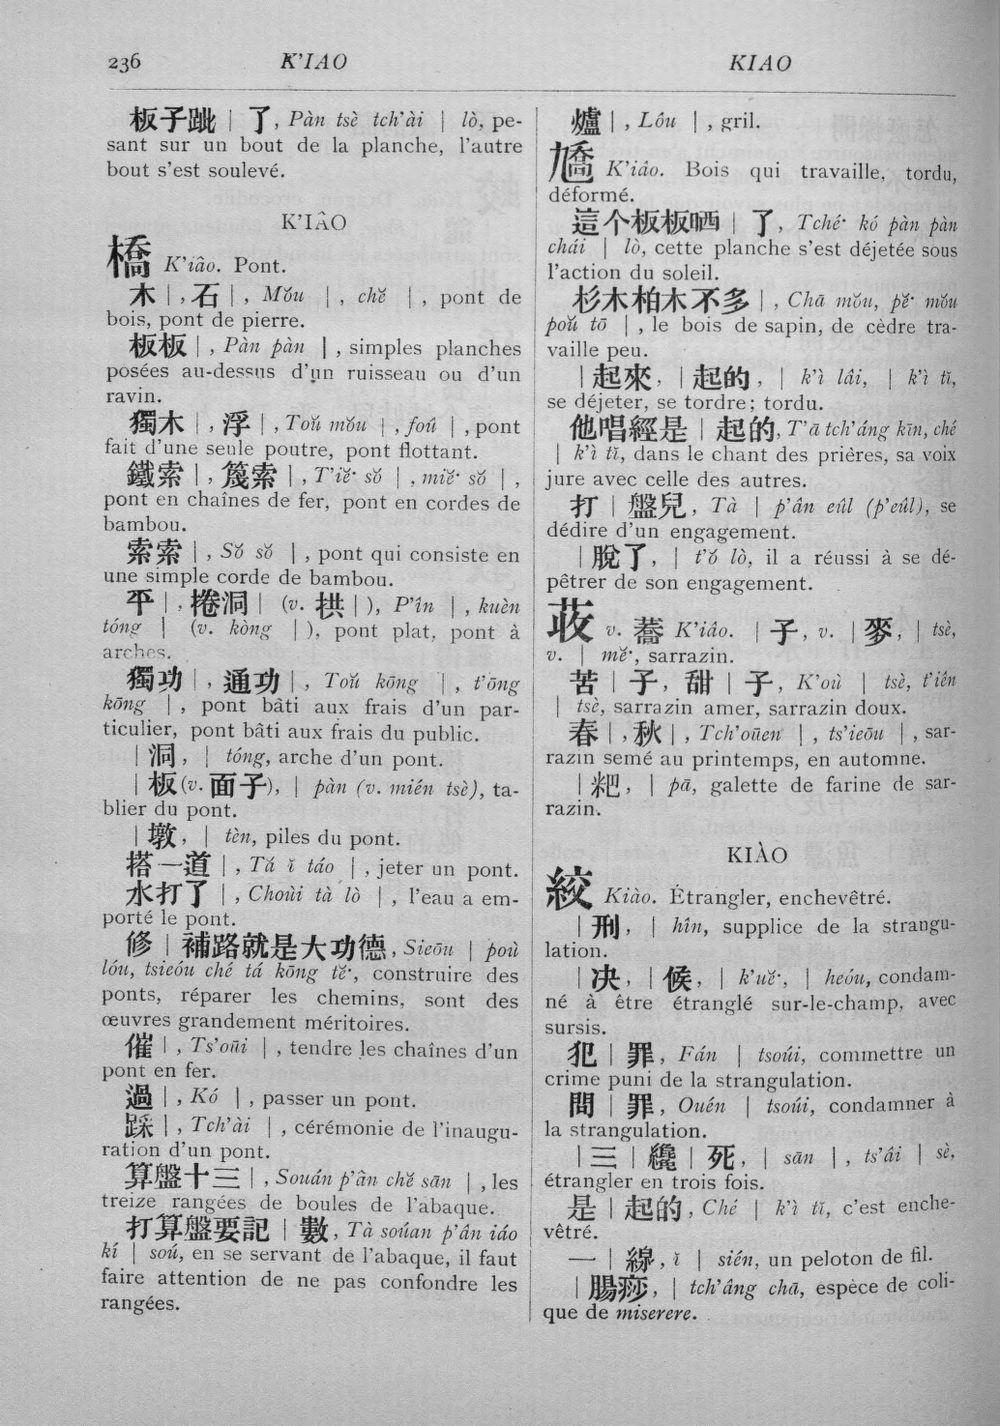 236 K'IAO KIAO
板子跐 | 了, Pàn tsè tch'ài | lò, pe-
sant sur un bout de la planche, l'autre
bout s'est soulevé.
K'IÂO
橋 K'iâo. Pont.
木 | , 石 | , Mŏu | , chĕ | , pont de
bois, pont de pierre.
板板 | , Pàn pàn | , simples planches
posées au-dessus d'un ruisseau ou d'un
ravin.
獨木 | , 浮 | , Toŭ mŏu | , foû | , pont
fait d'une seule poutre, pont flottant.
鐵索 | , 篾索 | , T'iĕ· sŏ | , miĕ· sŏ | ,
pont en chaînes de fer, pont en cordes de
bambou.
索索 | , Sŏ sŏ | , pont qui consiste en
une simple corde de bambou.
平 | , 捲洞 | (v. 拱 | ), P'în | , kuèn
tóng | (v. kòng | ), pont plat, pont à
arches.
獨功 | , 通功 | , Toŭ kōng | , t'ōng
kōng | , pont bâti aux frais d'un par-
ticulier, pont bâti aux frais du public.
| 洞, | tóng, arche d'un pont.
| 板 (v. 面子), | pàn (v. mién tsè), ta-
blier du pont.
| 墩, | tèn, piles du pont.
搭一道 | , Tá ĭ táo | , jeter un pont.
水打了 | , Choùi tà lò | , l'eau a em-
porté le pont.
修 | 補路就是大功德, Sieōu | poù
lóu, tsieóu ché tá kōng tĕ·, construire des
ponts, réparer les chemins, sont des
œuvres grandement méritoires.
催 | , Ts'oūi | , tendre les chaînes d'un
pont en fer.
過 | , Kó | , passer un pont.
踩 | , Tch'ài | , cérémonie de l'inaugu-
ration d'un pont.
算盤十三 | , Souán p'ân chĕ sān | , les
treize rangées de boules de l'abaque.
打算盤要記 | 數, Tà soúan p'ân iáo
kí | soú, en se servant de l'abaque, il faut
faire attention de ne pas confondre les
rangées.
爐 | , Lôu | , gril.
K'iâo. Bois qui travaille, tordu,
déformé.
這个板板晒 | 了, Tché· kó pàn pàn
chái | lò, cette planche s'est déjetée sous
l'action du soleil.
杉木柏木不多 | , Chā mŏu, pĕ· mŏu
poŭ tō | , le bois de sapin, de cèdre tra-
vaille peu.
| 起來, | 起的, | k'ì lâi, | k'ì tĭ,
se déjeter, se tordre; tordu.
他唱經是 | 起的, T'ā tch'áng kīn, ché
| k'ì tĭ, dans le chant des prières, sa voix
jure avec celle des autres.
打 | 盤兒, Tà | p'ân eûl (p'eûl), se
dédire d'un engagement.
| 脫了, | t'ŏ lò, il a réussi à se dé-
pêtrer de son engagement.
荍 v. 蕎 K'iâo. | 子, v. | 麥, | tsè,
v. | mĕ·, sarrazin.
苦 | 子, 甜 | 子, K'où | tsè, t'iên
| tsè, sarrazin amer, sarrazin doux.
春 | , 秋 | , Tch'oūen | , ts'ieōu | , sar-
razin semé au printemps, en automne.
| 粑, | pā, galette de farine de sar-
razin.
KIÀO
絞 Kiào. Étrangler, enchevêtré.
| 刑, | hîn, supplice de la strangu-
lation.
| 决, | 候, | k'uĕ·, | heóu, condam-
né à être étranglé sur-le-champ, avec
sursis.
犯 | 罪, Fán | tsoúi, commettre un
crime puni de la strangulation.
問 | 罪, Ouén | tsoúi, condamner à
la strangulation.
| 三 | 纔 | 死, | sān | , ts'âi | sè,
étrangler en trois fois.
是 | 起的, Ché | k'ì tĭ, c'est enche-
vêtré.
一 | 線, ĭ | sién, un peloton de fil.
| 腸痧, | tch'âng chā, espèce de coli-
que de miserere.